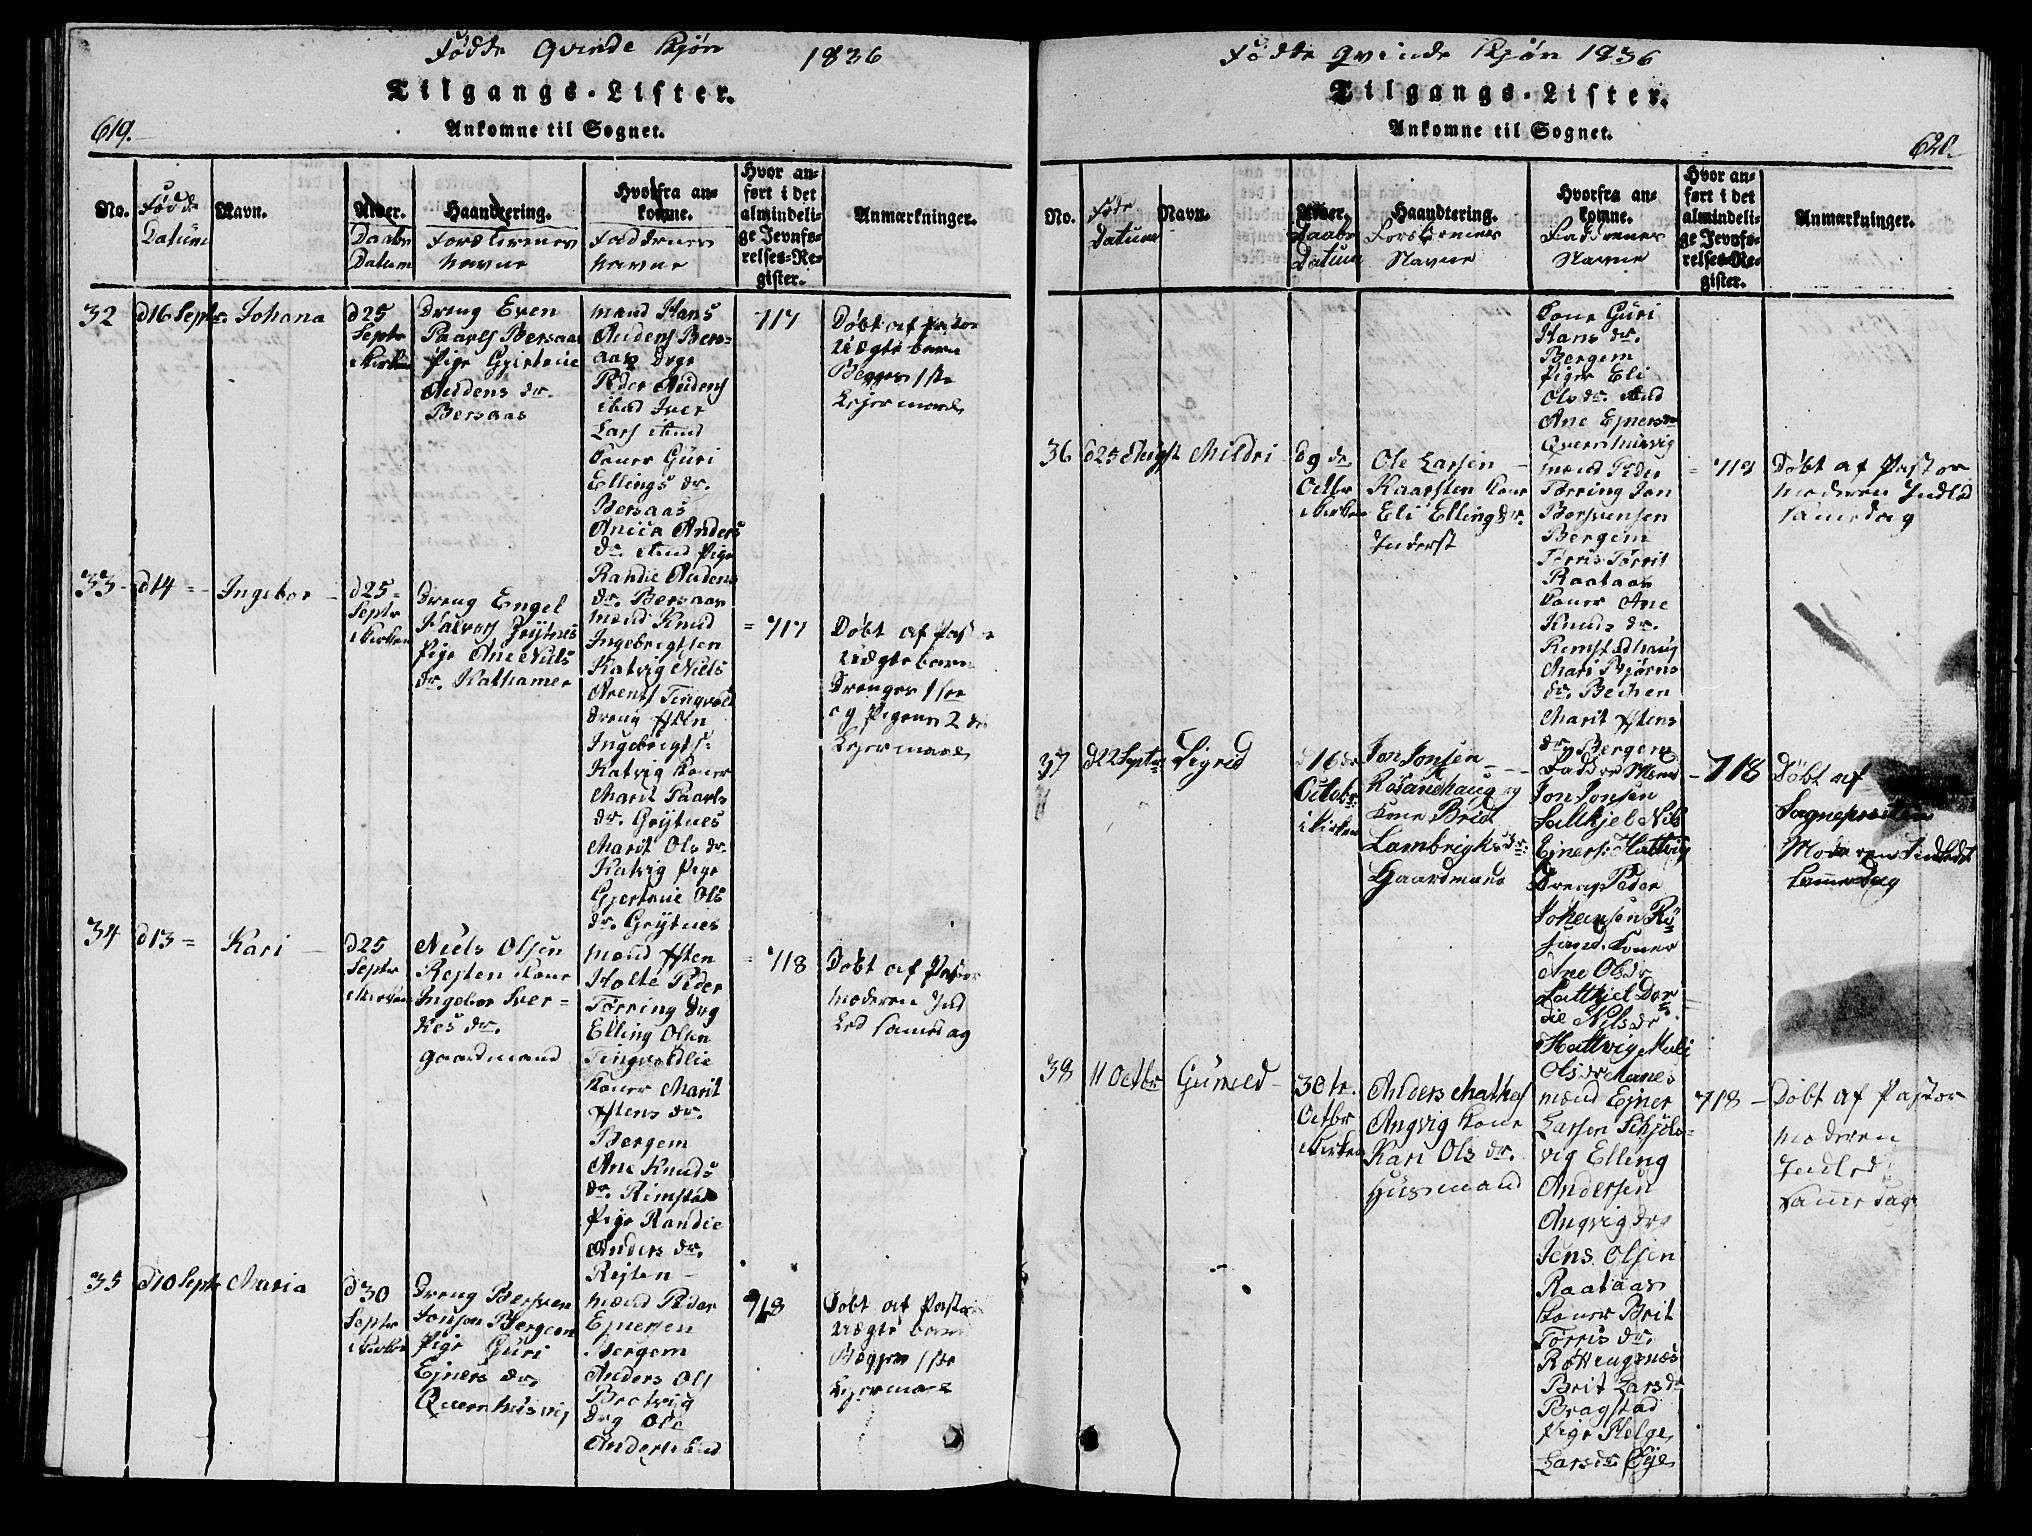 Fødde Qvinde Kjøn 1836
Tilgangs-Lister.
Ankomne til Sognet.
619.
No.
Fødde
Datum
Navn.
Alder.
Daabs
Datum
Haandtering.
Forældrenes
Navne
Hvorfra an-
komne.
Faddernes
Navne
Hvor an-
ført i det
almindeli-
ge Jevnfø-
relses-Re-
gister.
Anmærkninger.
32
d16 Septr.
Johana
d25
Septr
i Kirken
Dreng Even
Paarls Bersaas
Pige Gjertrue
Audens dr.
Bersaas
mænd Hans
Anders Bers=
aas
Peder Anders
ibid Iver
Lars ibid
Koner Guri
Ellings dr.
Bersaas
Anders
dr. ibid Pige
Randie Audens
dr. Bersaas
717
Døbt af Pastor
Uægte barn
Begges 1ste
Lejermaal
33
d14 =
Ingebor
d25
Septr
i Kirken
Dreng Engel
Halvors Grytnes
Pige Ane Niels
dr. Kathamer
mænd Knud
Ingebrigtsen
Katvig Niels
Arents Tingvold
Dreng Esten
Ingebrigts:
Katvig Koner
Marit Paarls
dr. Grytnes
Marit Ols dr.
Katvig Pige
Gjertrue Ols
dr. Grytnes
= 717
Døbt af Pastor
Uægte barn
Drenges 1ste
og Pigens 2 de
Lejermaal
34
d13 =
Kari
d25
Septr
i Kirken
Niels Olsen
Rejten Kone
Ingebor Iver=
Kes dr.
Gaardmand
mænd Esten
Holte Peder
Tørring Drg
Elling Olsen
Tingvoldlie
Koner Marit
Estens dr.
Bergem
Ane Knuds
dr. Rimstad
Pige Randie
Anders dr.
Rejten
= 718
Døbt af Pastor
Moderen Ind
Led samedag
35
d10 Septr
Maria
d30
Septr
i Kirken
Dreng Bersven
Jonsen Bergem
Pige Guri
Ejners dr.
Quernhusvig
mænd Peder
Ejnersen
Bergem
Anders Ols
Brotvig
Drg Ole
Anders ibid
718
Døbt af Pastor
Uægte barn
Begges 1ste
Lejermaal
Fødde Qvinde Kjøn 1836
Tilgangs-Lister.
Ankomne til Sognet.
620.
No.
Føde
Datum
Navn.
Alder.
Daabs
Datum
Haandtering.
Forældrenes
Navne
Hvorfra an-
komne.
Faddrenes
Navne
Hvor an-
ført i det
almindeli-
ge Jevnfø-
relses-Re-
gister.
Anmærkninger.
Kone Guri
Hans dr.
Bergem
Piger Eli
Ols dr. ibid
Ane Ejners dr
Qvernhusvig
36
d25 Augst
Mildri
d9 de
Octbr
i Kirken
Ole Larsen
Kaarsten Kone
Eli Elling dr.
Inderst
mænd Peder
Tørring Jon
Bersvensen
Bergem
Torris Torris
Raataas
Koner Ane
Knuds dr.
Remstadhaug
Mari Bjørns
dr. Bechen
Marit Estens
dr. Bergem
= 718
Døbt af Pastor
Moderen Indled
samedag
37
d22 Septr
Sigrid
d16 de
Octobr
i Kirken
Jon Jonsen
Røsandhaug og
Kone Brit
Lambrigts dr.
Gaardmand
Faddre Mænd
Jon Jonsen
Saltkjel Nils
Ejners: Hattvig
Dreng Peder
Johansen Rø
sand. Koner
Ane Olsdr
Saltkjel Dor
die Nilsdr
Hattvig Mali
Olsdr Manes
718
Døbt af
Sognepresten
Moderen Indledt
Samedag
38
11 Octbr
Gunild
30 te
Octbr
i Kirken
Anders Mathes
Angvig Kone
Kari Ols dr.
Husmand
mænd Ejner
Larsen Skjøls=
vig Elling
Andersen
Angvig drg
Jens Olsen
Raataas
Koner Brit
Torris dr.
Røttingsnæs
Brit Lars dr
Bragstad
Pige Helge
Larsdr Øye
718
Døbt af Pastor
Moderen
Indled
samedag